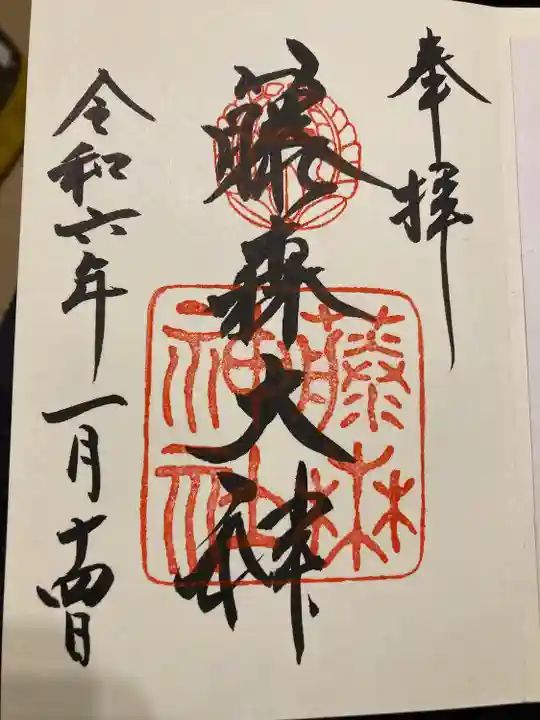 奉拝
藤森大神
藤森神社
令和六年一月十四日